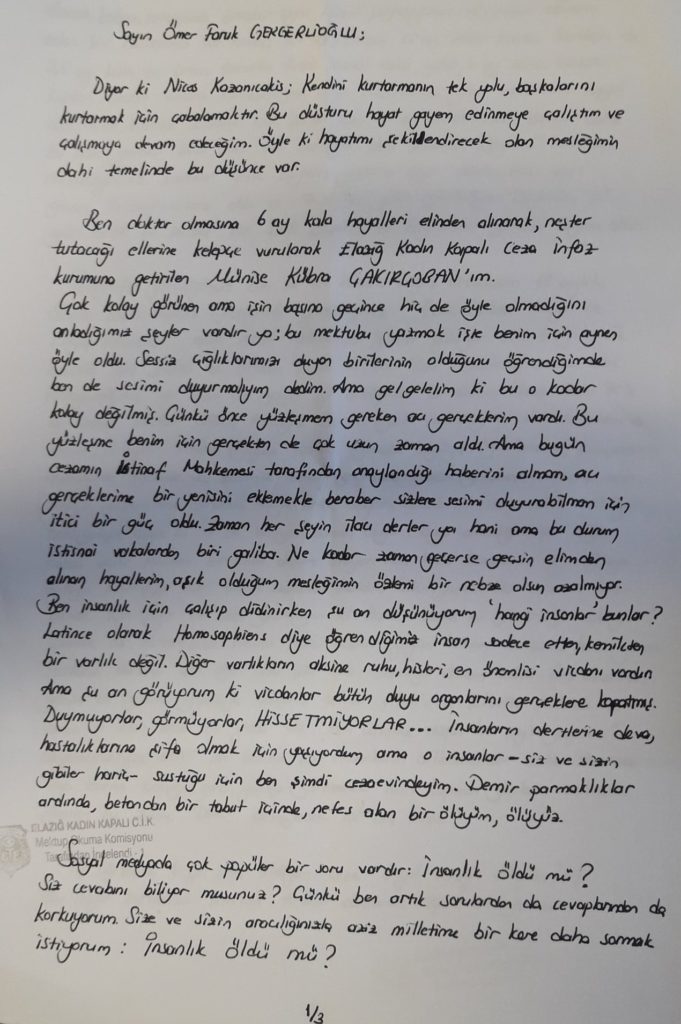 Sayın Ömer Faruk GERGERLİOĞLU;
Diyor ki Nicos Kazanıcakis; Kendini kurtarmanın tek yolu, başkalarını
kurtarmak için çabalamaktır. Bu düsturu hayat gayem edinmeye çalıştım ve
çalışmaya devam edeceğim. Öyle ki hayatımı şekillendirecek olan mesleğimin
dahi temelinde bu düşünce var.
Ben doktor olmasına 6 ay kala hayalleri elinden alınarak, neşter
tutacağı ellerine kelepçe vurularak Elazığ Kadın Kapalı Ceza İnfaz
kurumuna getirilen Münise Kübra ÇAKIRÇOBAN'ım.
Çok kolay görünen ama işin başına geçince hiç de öyle olmadığını
anladığımız şeyler vardır ya; bu mektubu yazmak işte benim için aynen
öyle oldu. Sessiz çığlıklarımızı duyan birilerinin olduğunu öğrendiğimde
ben de sesimi duyurmalıyım dedim. Ama gel gelelim ki bu o kadar
kolay değilmiş. Çünkü önce yüzleşmem gereken acı gerçeklerim vardı. Bu
yüzleşme benim için gerçekten de çok uzun zaman aldı. Ama bugün
cezamın İstinaf Mahkemesi tarafından onaylandığı haberini almam, acı
gerçeklerime bir yenisini eklemekle beraber sizlere sesimi duyurabilmem için
itici bir güç oldu. Zaman her şeyin ilacı derler ya hani ama bu durum
istisnai vakalardan biri galiba. Ne kadar zaman geçerse geçsin elimden
alınan hayallerim, aşık olduğum mesleğimin özlemi bir nebze olsun azalmıyor.
Ben insanlık için çalışıp didinirken şu an düşünüyorum 'hangi insanlar' bunlar?
Latince olarak Homosaphiens diye öğrendiğimiz insan sadece etten, kemikten
bir varlık değil. Diğer varlıkların aksine ruhu, hisleri, en önemlisi vicdanı vardır.
Ama şu an görüyorum ki vicdanlar bütün duyu organlarını gerçeklere kapatmış.
Duymuyorlar, görmüyorlar, HİSSETMİYORLAR... İnsanların dertlerine deva,
hastalıklarına şifa olmak için yaşıyordum ama o insanlar - siz ve sizin
gibiler hariç - sustuğu için ben şimdi cezaevindeyim. Demir parmaklıklar
ardında, betondan bir tabut içinde, nefes alan bir ölüyüm, ölüyüz.
ELAZIĞ KADIN KAPALI C.İ.K
Mektup Okuma Komisyonu
Tarafından İncelendi - 1
Sosyal medyada çok popüler bir soru vardır: İnsanlık öldü mü?
Siz cevabını biliyor musunuz? Çünkü ben artık sorulardan da cevaplarından da
korkuyorum. Size ve sizin aracılığınızla aziz milletime bir kere daha sormak
istiyorum: İnsanlık öldü mü?
1/3